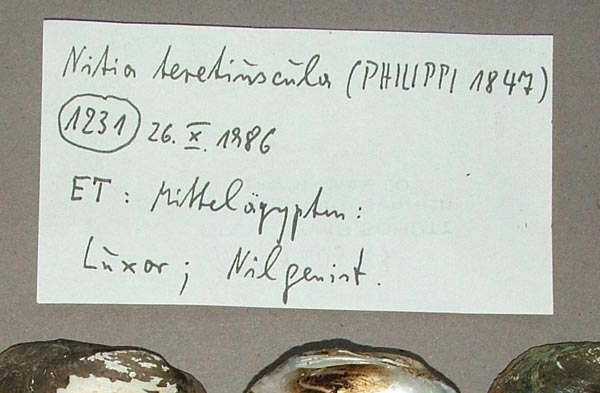 Nitia teretiuscula (PHILIPPI 1847)
1231 26. X. 1986
ET: Mittelägypten:
Luxor; Nilgenist.